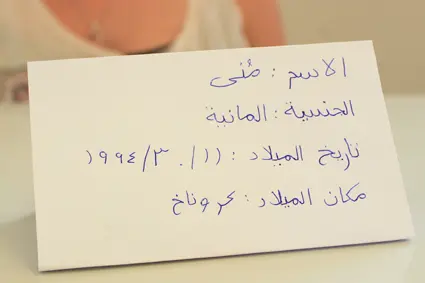 الاسم : مُنى
الجنسية : المانية
تاريخ الميلاد : ١١/٠٣/١٩٩٤
مكان الميلاد :